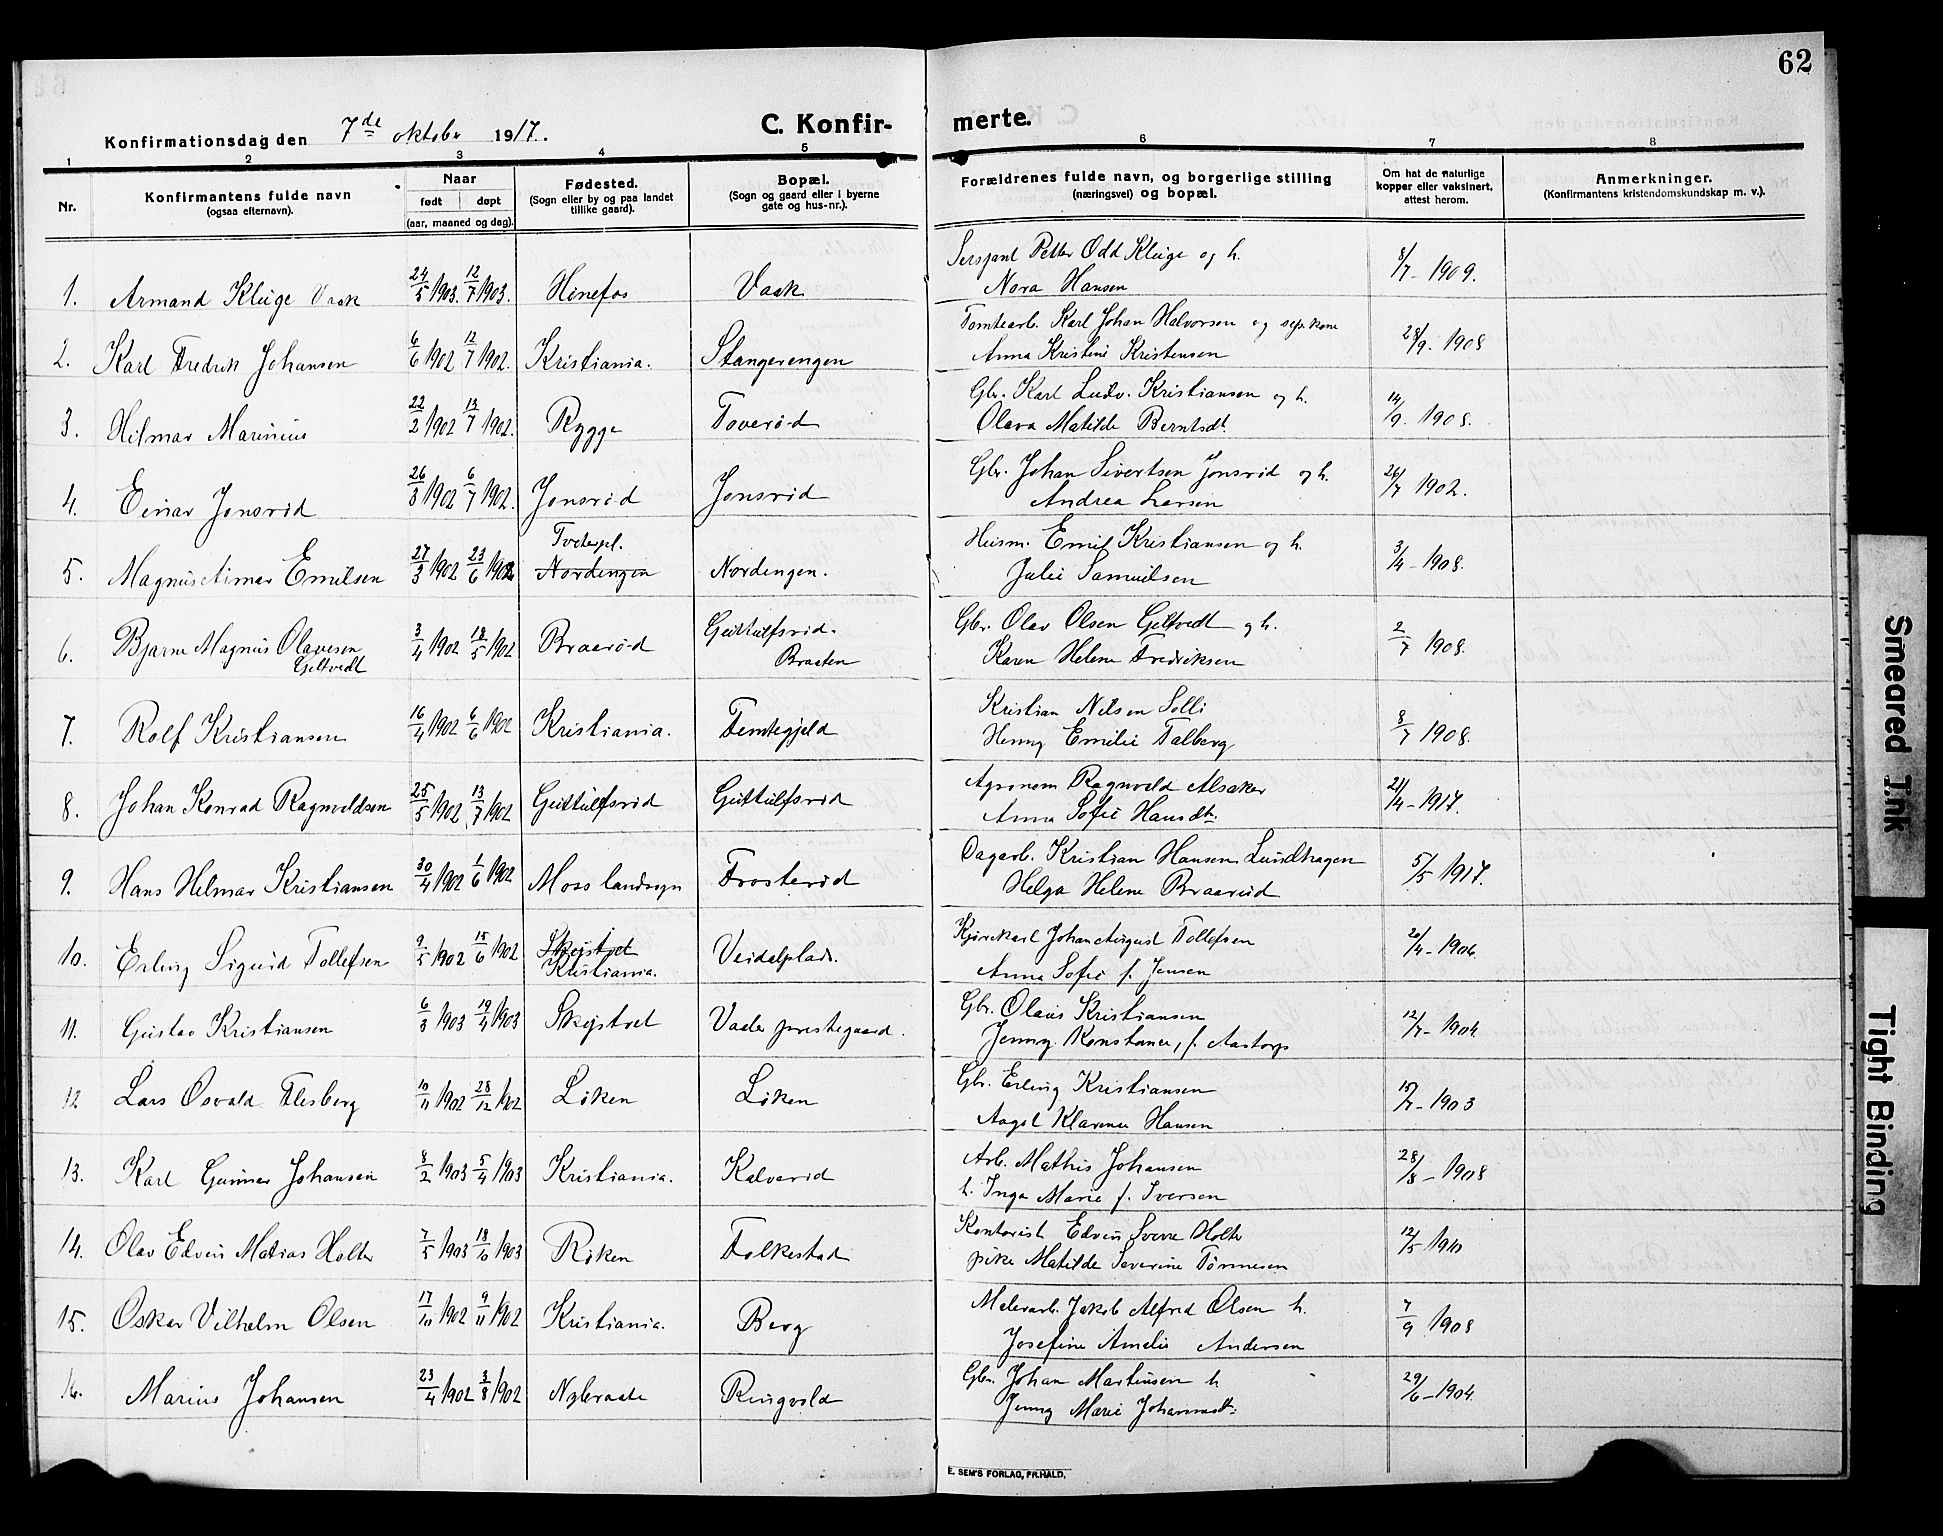 62
Konfirmationsdag den 7de oktober 1917.
C. Konfirmerte.
1 2 3 4 5 6 7 8
Nr.
Konfirmantens fulde navn
(ogsaa efternavn).
Naar
født døpt
(aar, maaned og dag).
Fødested.
(Sogn eller by og paa landet
tillike gaard).
Bopæl.
(Sogn og gaard eller i byerne
gate og hus-nr.).
Forældrenes fulde navn, og borgerlige stilling
(næringsvei) og bopæl.
Om hat de naturlige
kopper eller vaksinert,
attest herom.
Anmerkninger.
(Konfirmantens kristendomskundskap m. v.).
1. Armand Kluge Vaak 24/5 1903. 12/7 1903. Hønefos Vaak Sersjant Petter Odd Kluge og h.
Nora Hansen 8/7 - 1909.
2. Karl Fredrik Johansen 6/6 1902 12/7 1902. Kristiania. Stangerengen Tomtearb. Karl Johan Halvorsen og
Anna Kristine Kristensen 28/9. 1908
3. Hilmar Marinius 22/2 1902 13/7 1902. Rygge Toverød Gbr. Karl Ludv. Kristiansen og h.
Olava Matilde Berntsdt. 14/9. 1908.
4. Einar Jonsrød 26/3 1902 6/7 1902. Jonsrød Jonsrød Gbr. Johan Sivertsen Jonsrød og h.
Andrea Larsen 26/7 1902.
5. Magnus Aimar Emilsen 27/3 1902 23/6 1902 Tveterpl.
Nordengen Nordengen. Husm. Emil Kristiansen og h.
Julie Samuelsen 3/4 - 1908.
6. Bjarne Magnus Olavesen
Gjeltvedt 3/4 1902 18/5 1902 Braarød Guttulfsrød.
Braaten Gbr. Olav Olsen Geltvedt og h.
Karen Helene Fredriksen 2/7 1908.
7. Rolf Kristiansen 16/4 1902 6/6 1902 Kristiania. Femtegjeld Kristian Nilsen Solli
Henny Emilie Talberg 8/7 1908.
8. Johan Konrad Ragnvoldsen 25/5 1902 13/7 1902 Guttulfsrød Guttulfsrød Agronom Ragnvald Alsaker
Anna Sofie Hansdt. 21/4 - 1917.
9. Hans Helmar Kristiansen 30/4 1902 1/6 1902 Moss landsogn Frosterød Dagarb. Kristian Hansen Lundhagen
Helga Helene Braarud 5/5 1917.
10. Erling Sigurd Tollefsen 9/5 1902 15/6 1902 Skøjtvet
Kristiania. Veidalplads. Kjørekarl Johan August Tollefsen
Anna Sofie f. Jensen 20/4 - 1906
11. Gustav Kristiansen 6/3 1903 19/4 1903 Skøjtvet Vaaler prestegaard. Gbr. Olaus Kristiansen
Jenny Konstance, f. Aastorp 12/7 - 1904
12 Lars Osvald Flesberg 10/11 1902 28/12 1902 Løken Løken Gbr. Erling Kristiansen
Aagot Klarence Hansen 15/7 - 1903
13. Karl Gunnar Johansen 8/2 1903 5/4 1903 Kristiania. Kalverød Arb. Mathis Johansen
h. Inga Marie f. Iversen 28/8 - 1908
14. Olav Edvin Matias Holter 7/5 1903 18/10 1903 Røken Folkestad Kontorist Edvin Sverre Holter
pike Matilde Severine Tønnesen 12/5 1910
15. Oskar Vilhelm Olsen 17/10 1902 9/11 1902 Kristiania. Berg Malerarb. Jakob Alfred Olsen h.
Josefine Amalie Andersen 7/9 1908
16. Marius Johansen 23/4 1902 3/8 1902 Nybraate Ringvold Gbr. Johan Martinsen h
Jenny Marie Johannesdt. 29/6 - 1904
E. SEM'S FORLAG, FR.HALD.
Smeared Ink
Tight Binding